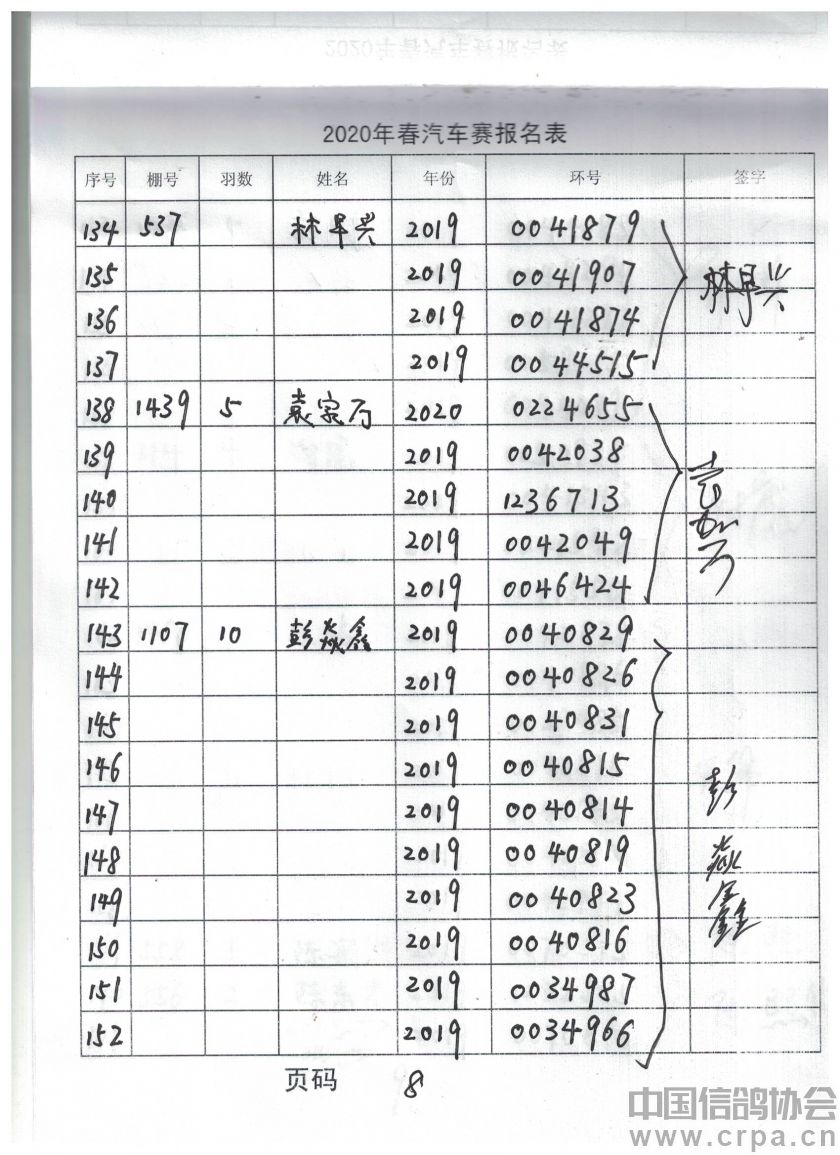 2020年春汽车赛报名表
序号 棚号 羽数 姓名 年份 环号 签字
134 537 林早兴 2019 0041879
135 2019 0041907 林早兴
136 2019 0041874
137 2019 0044515
138 1439 5 袁家万 2020 0224655
139 2019 0042038
140 2019 1236713
141 2019 0042049
142 2019 0046424
143 1107 10 彭焱鑫 2019 0040829
144 2019 0040826
145 2019 0040831
146 2019 0040815 彭
147 2019 0040814
148 2019 0040819 焱
149 2019 0040823 鑫
150 2019 0040816
151 2019 0034987
152 2019 0034966
页码 8
中国信鸽协会
www.crpa.cn